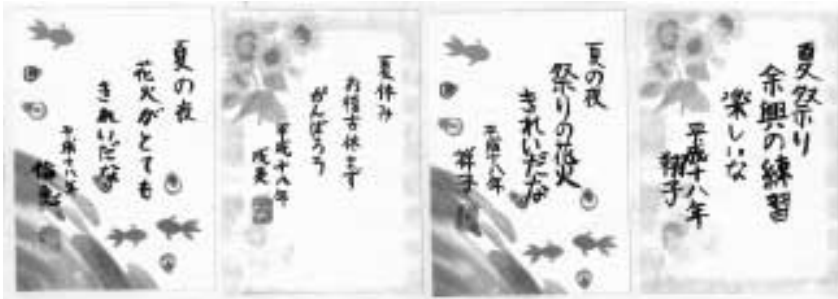 夏の夜
花火がとても
きれいだな
平成十八年
夏休み
お稽古休まず
がんばろう
平成十八年
夏の夜
祭りの花火
きれいだな
平成十八年
祥子
夏祭り
余興の練習
楽しいな
平成十八年
翔子